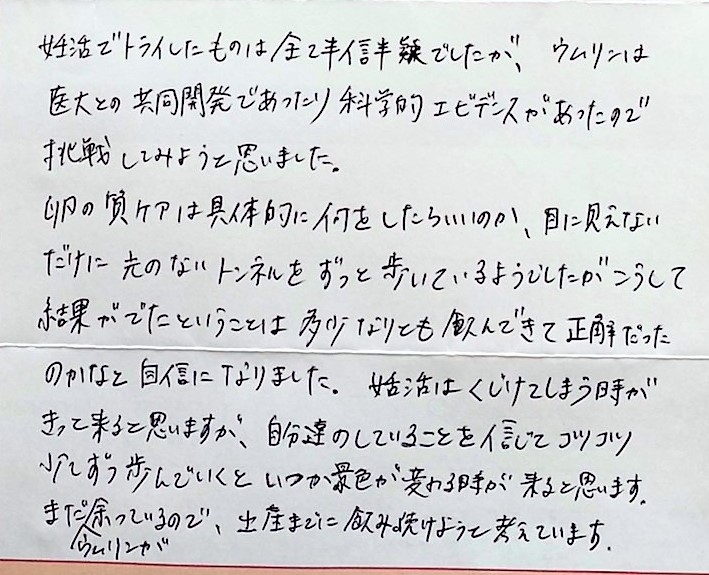 妊活でトライしたものは全て半信半疑でしたが、ウムリンは
医大との共同開発であったり科学的エビデンスがあったので
挑戦してみようと思いました。
卵の質ケアは具体的に何をしたらいいのか、目に見えない
だけに光のないトンネルをずっと歩いているようでしたがこうして
結果がでたということは多少なりとも飲んできて正解だった
のかなと自信になりました。妊活はくじけてしまう時が
きって来ると思いますが、自分達のしていることを信じてコツコツ
少しずつ歩んでいくといつか景色が変わる時が来ると思います。
まだ余っているので、出産までに飲み続けようと考えています。
ウムリンが